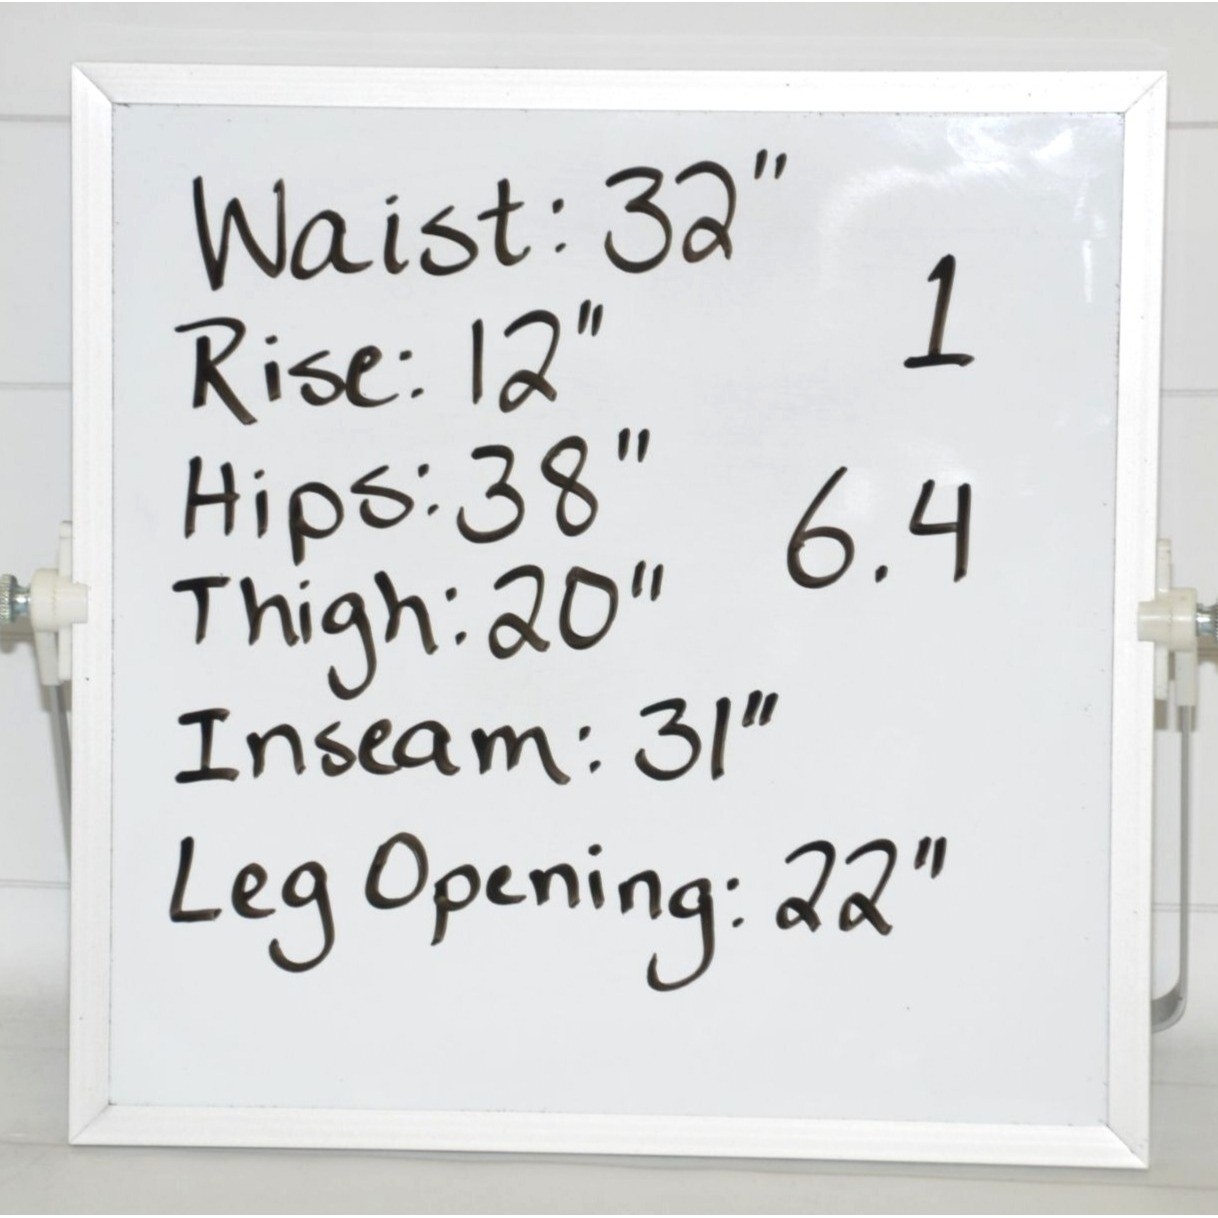 Waist: 32"
Rise: 12"
1
Hips: 38"
6.4
Thigh: 20"
Inseam: 31"
Leg Opening: 22"